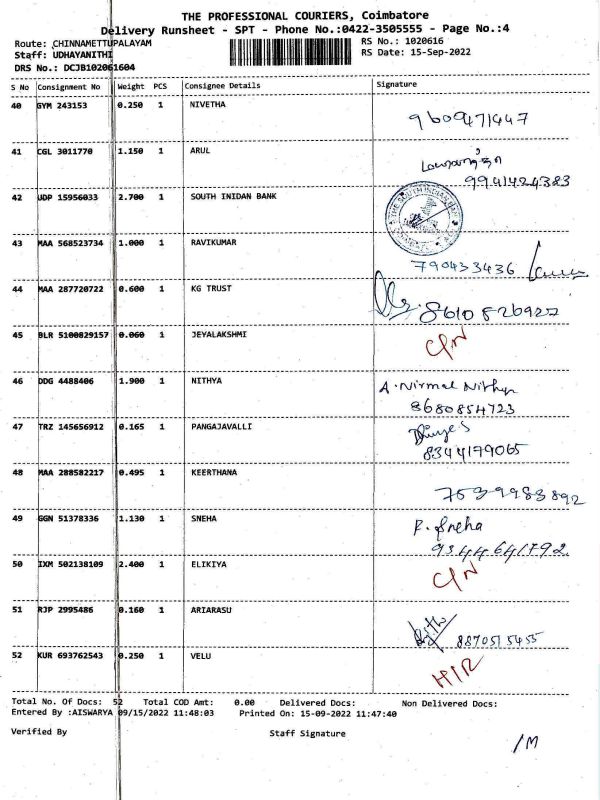 THE PROFESSIONAL COURIERS, Coimbatore
Delivery Runsheet - SPT - Phone No.:0422-3505555 - Page No.:4
Route: CHINNAMETTUPALAYAM RS No.: 1020616
Staff: UDHAYANITHI RS Date: 15-Sep-2022
DRS No.: DCJB102061604
S No Consignment No Weight PCS Consignee Details Signature
40 GYM 243153 0.250 1 NIVETHA
9609471447
41 CGL 3011770 1.150 1 ARUL
9941424383
42 UDP 15956033 2.700 1 SOUTH INIDAN BANK
THE SOUTH INDIAN BANK
43 MAA 568523734 1.000 1 RAVIKUMAR
790433436
44 MAA 287720722 0.600 1 KG TRUST
8610826922
45 BLR 5100829157 0.060 1 JEYALAKSHMI
C/N
46 DDG 4488406 1.900 1 NITHYA
A. Nirmal Nithya
8680854723
47 TRZ 145656912 0.165 1 PANGAJAVALLI
8344179065
48 MAA 288582217 0.495 1 KEERTHANA
7539983892
49 GGN 51378336 1.130 1 SNEHA
R. Sneha
9344641792
50 IXM 502138109 2.400 1 ELIKIYA
C/N
51 RJP 2995486 0.160 1 ARIARASU
8870515455
52 KUR 693762543 0.250 1 VELU
H/R
Total No. Of Docs: 52 Total COD Amt: 0.00 Delivered Docs: Non Delivered Docs:
Entered By :AISWARYA 09/15/2022 11:48:03 Printed On: 15-09-2022 11:47:40
Verified By Staff Signature
/M